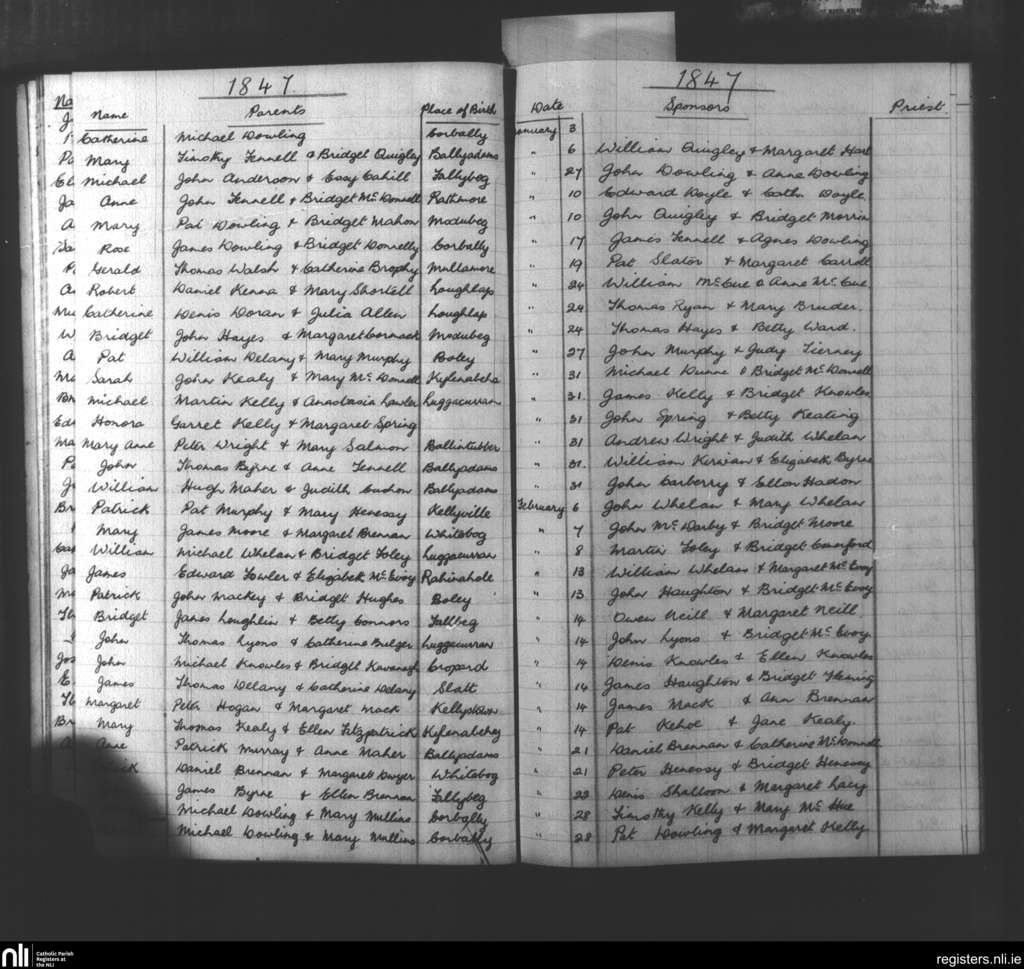 1847
1847
Na Name Parents Place of Birth Date Sponsors Priest
Catherine Michael Dowling Corbally January 3
Mary Timothy Fennell & Bridget Quigley Ballyadams " 6 William Quigley & Margaret Hart
Michael John Anderson & Essy Cahill Fallybeg " 27 John Dowling & Anne Dowling
Anne John Fennell & Bridget McDonnell Rathmore " 10 Edward Doyle & Cath. Doyle
Mary Pat Dowling & Bridget Mahon Modubeg " 10 John Quigley & Bridget Morrin
Rose James Dowling & Bridget Donnelly Corbally " 17 James Fennell & Agnes Dowling
Gerald Thomas Walsh & Catherine Brophy Mullamore " 19 Pat Slator & Margaret Carroll
Robert Daniel Kenna & Mary Shortell Loughlap " 24 William McCue & Anne McCue
Catherine Denis Doran & Julia Allen Loughlap " 24 Thomas Ryan & Mary Bruder.
Bridget John Hayes & Margaret Cormack Modubeg " 24 Thomas Hayes & Betty Ward.
Pat William Delany & Mary Murphy Boley " 27 John Murphy & Judy Tierney
Sarah John Kealy & Mary McDonnell Kylenabeha " 31 Michael Dunne & Bridget McDonnell
Michael Martin Kelly & Anastasia Lawler Luggacurran " 31. James Kelly & Bridget Knowles
Honora Garret Kelly & Margaret Spring " 31 John Spring & Betty Keating
Mary Anne Peter Wright & Mary Salmon Ballintubber " 31 Andrew Wright & Judith Whelan
John Thomas Byrne & Anne Fennell Ballyadams " 31. William Kirwan & Elizabeth Byrne
William Hugh Maher & Judith Cushon Ballyadams " 31 John Carberry & Ellen Hadon
Patrick Pat Murphy & Mary Henessy Kellyville February 6 John Whelan & Mary Whelan
Mary James Moore & Margaret Brennan Whitebog " 7 John McDarby & Bridget Moore
William Michael Whelan & Bridget Foley Luggacurran " 8 Martin Foley & Bridget Comerford
James Edward Fowler & Elizabeth McEvoy Rahinahole " 13 William Whelan & Margaret McEvoy
Patrick John Mackey & Bridget Hughes Boley " 13 John Haughton & Bridget McEvoy
Bridget James Loughlin & Betty Connors Fallbeg " 14 Owen Neill & Margaret Neill.
John Thomas Lyons & Catherine Bulger Luggacurran " 14 John Lyons & Bridget McEvoy
John Michael Knowles & Bridget Kavanagh Cropard " 14 Denis Knowles & Ellen Knowles
James Thomas Delany & Catherine Delany Slatt " 14 James Haughton & Bridget Fleming
Margaret Peter Hogan & Margaret Mack Kellystown " 14 James Mack & Ann Brennan
Mary Thomas Kealy & Ellen Fitzpatrick Kylenabehey " 14 Pat Kehoe & Jane Kealy.
Anne Patrick Murray & Anne Maher Ballyadams " 21 Daniel Brennan & Catherine McDonnell
Daniel Brennan & Margaret Dwyer Whitebog " 21 Peter Henessy & Bridget Henessy
James Byrne & Ellen Brennan Fallybeg " 22 Denis Shalloon & Margaret Lacy
Michael Dowling & Mary Mullins Corbally " 28 Timothy Kelly & Mary McHue
Michael Dowling & Mary Mullins Corbally " 28 Pat Dowling & Margaret Kelly
nli Catholic Parish Registers at the NLI
registers.nli.ie